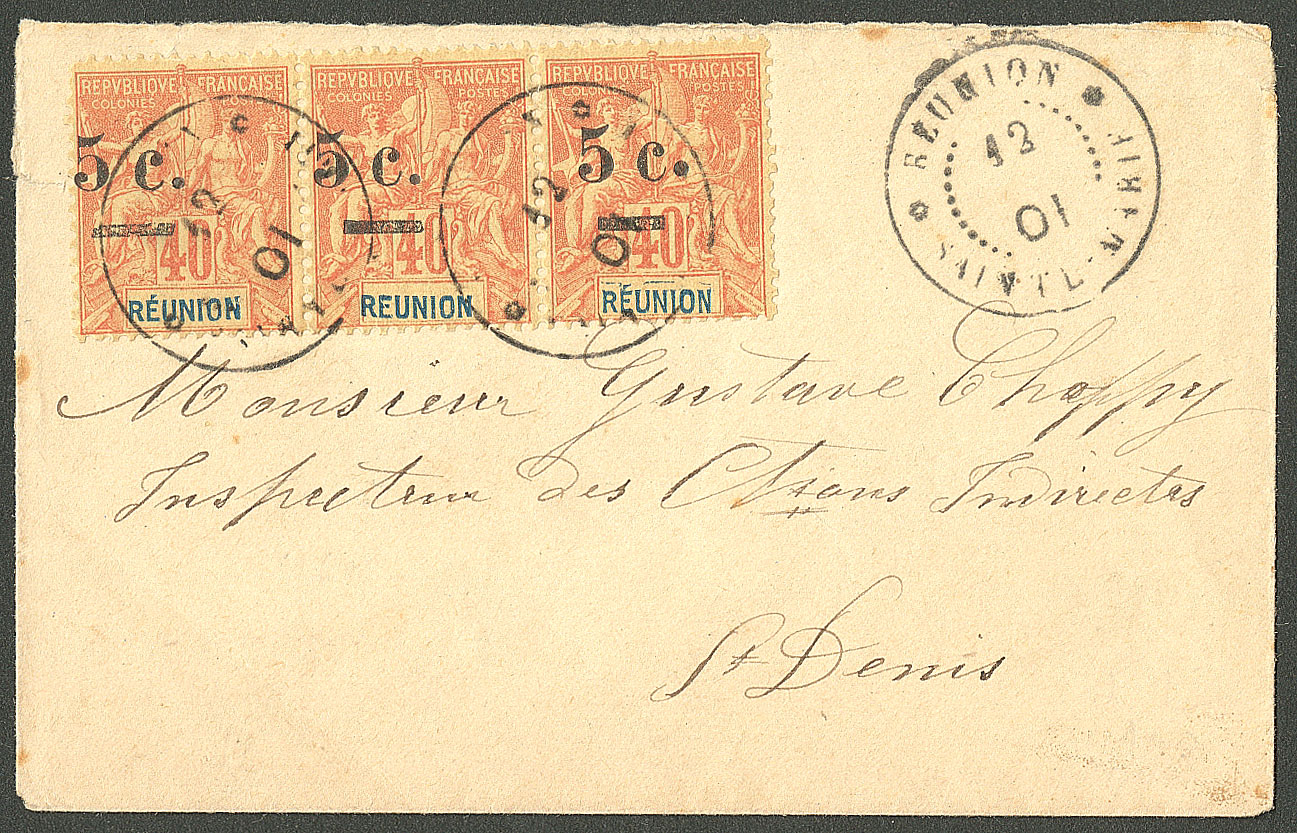 REPVBLIQVE FRANÇAISE REPVBLIQVE FRANÇAISE REPVBLIQVE FRANÇAISE
COLONIES COLONIES POSTES COLONIES POSTES
5 c. 5 c. 5 c.
40 40 40
RÉUNION REUNION RÉUNION
12 01
12 01
REUNION
12
01
Monsieur Gustave Choppy
Inspecteur des Ctions Indirectes
St Denis